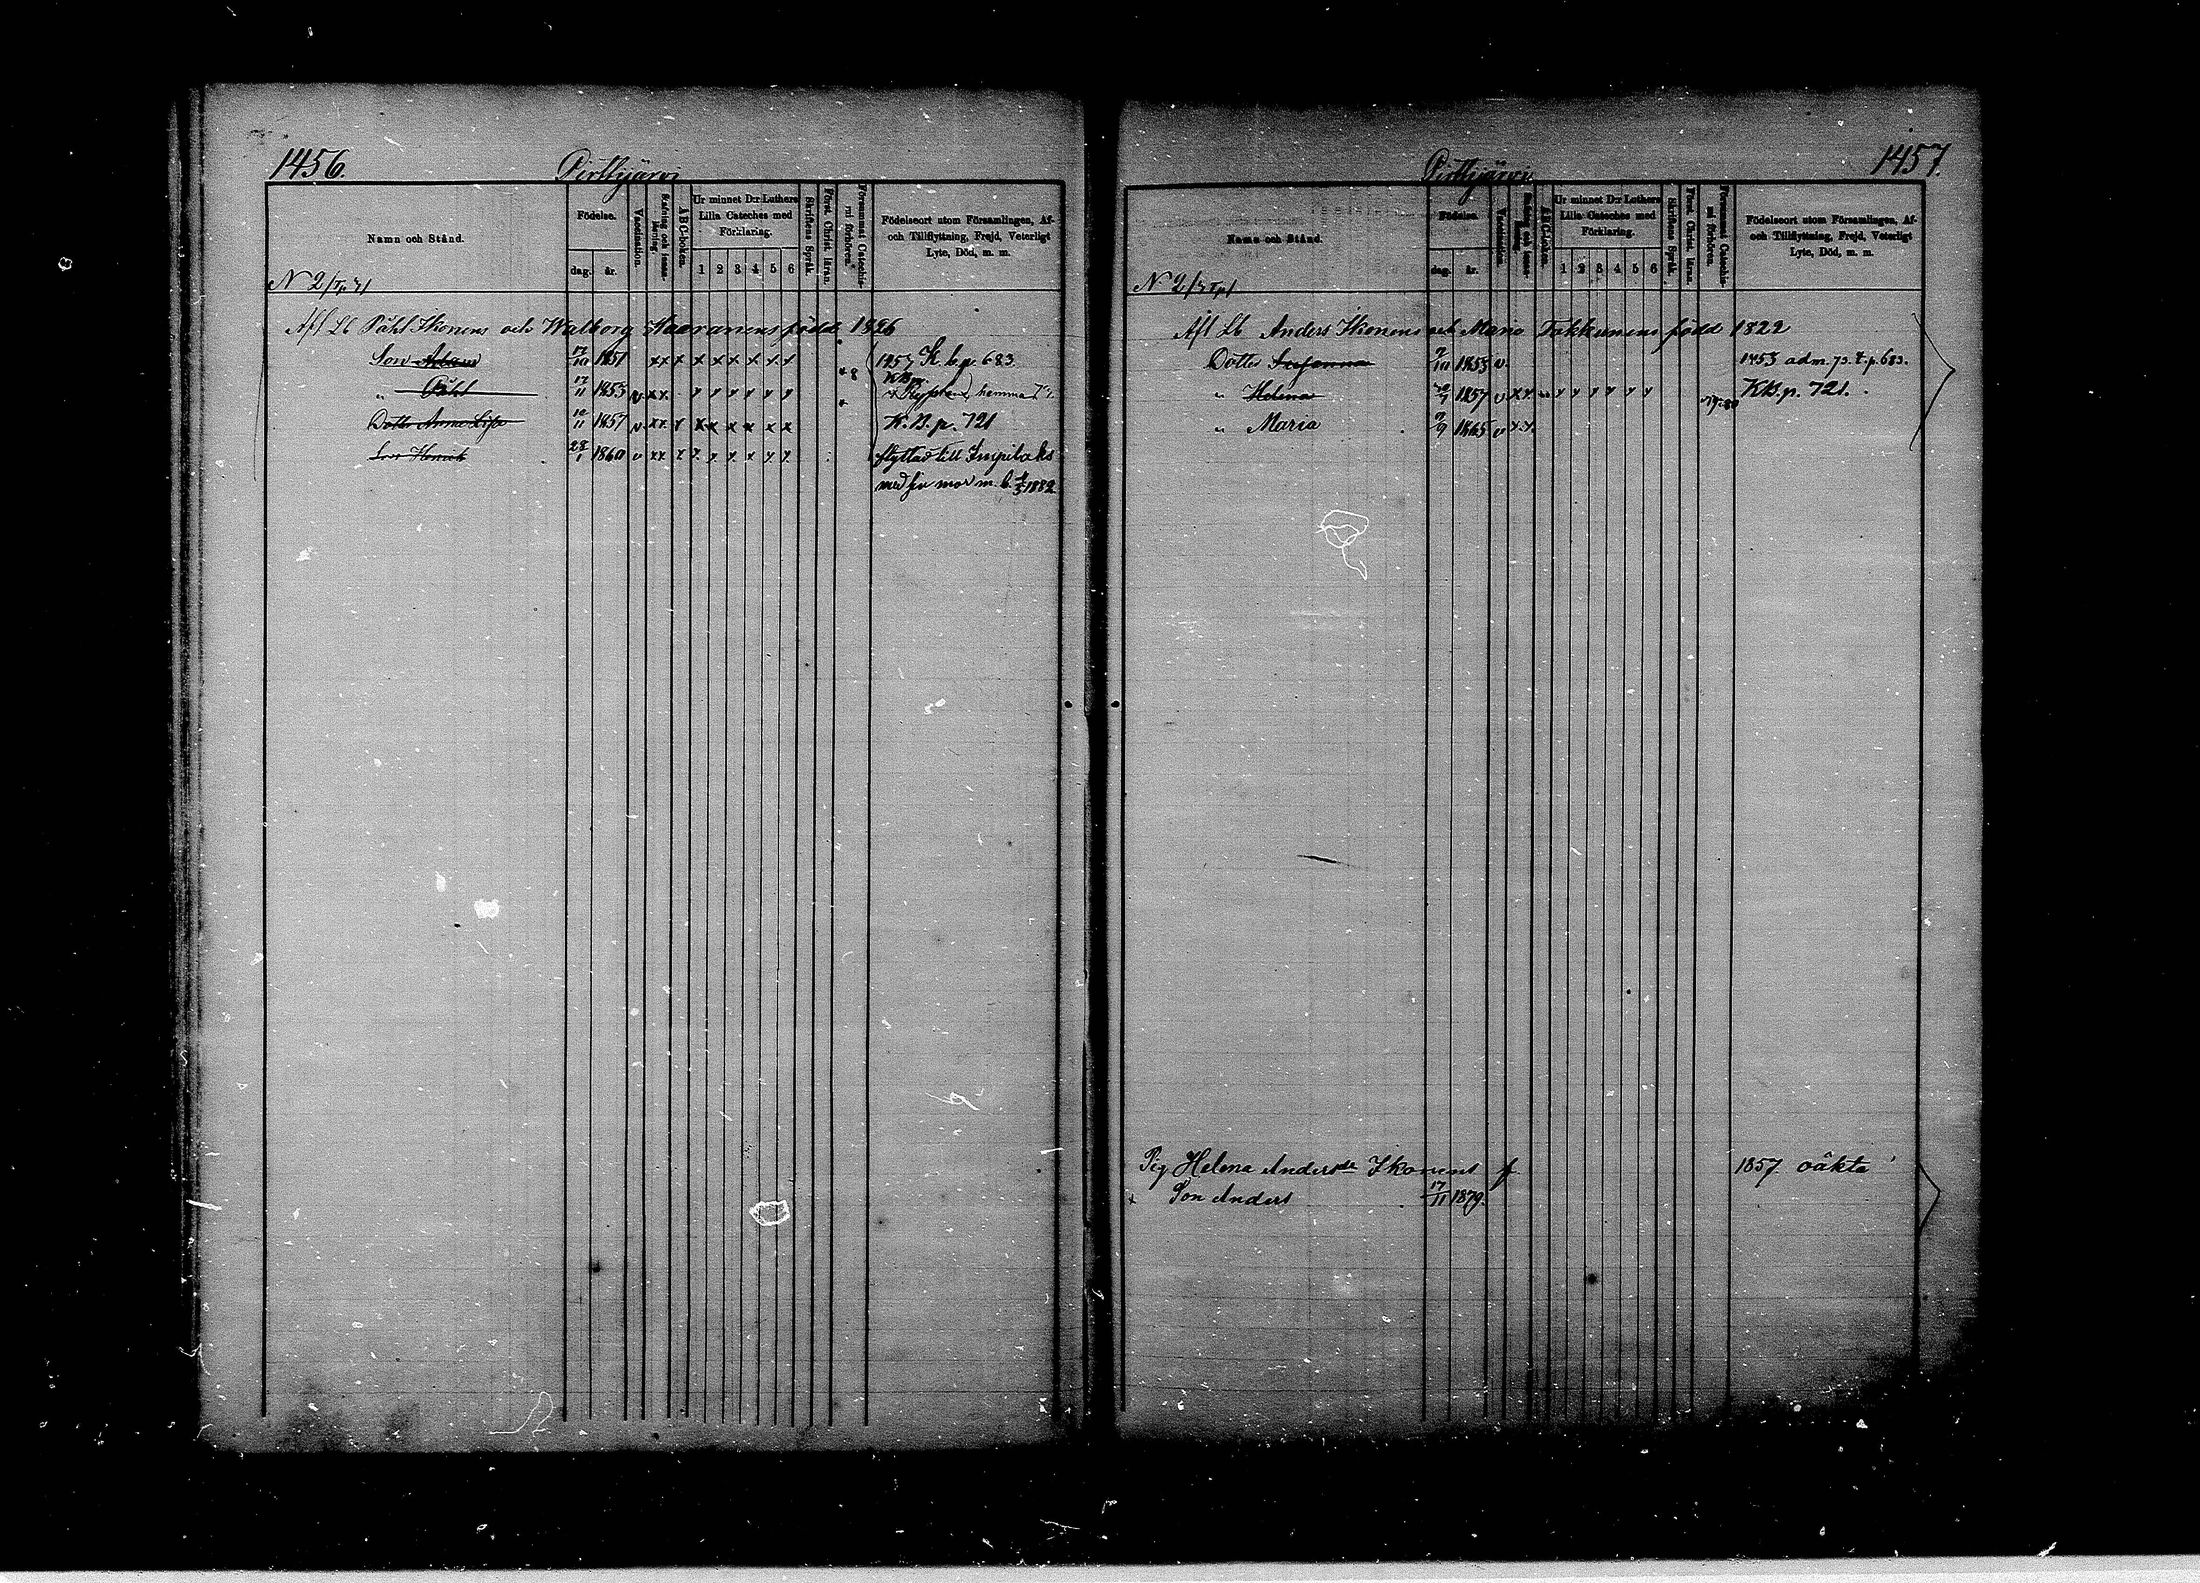 1456.
Pirttijärvi
Namn och Stånd.
Födelse.
dag.
år.
Vaccination.
Stafning och innanläsning.
ABC-boken.
Ur minnet D:r Luthers
Lilla Cateches med
Förklaring.
1 2 3 4 5 6
Skriftens Språk.
Först. Christ. läran.
Försummat Catechismi förhören.
Födelseort utom Församlingen, Af-
och Tillflyttning, Frejd, Veterligt
Lyte, Död, m. m.
N 2
Afl Lb Påhl Ikonens och Walborg Haaranens född 1826
Son Adam 17/10 1851 xx x x x x x x x 1853 K. b. p. 683.
" Påhl 17/11 1853 v xx x x x x x x hemma
Dotter Anna Lisa 10/11 1857 v xx x x x x x x x K. B. p. 721
Son Henrik 28/1 1860 v xx x x x x x x x flyttad till Impilaks
med sin mor m. b. 1882
1457.
Pirttijärvi
Namn och Stånd.
Födelse.
dag.
år.
Vaccination.
Stafning och innanläsning.
ABC-boken.
Ur minnet D:r Luthers
Lilla Cateches med
Förklaring.
1 2 3 4 5 6
Skriftens Språk.
Först. Christ. läran.
Försummat Catechismi förhören.
Födelseort utom Församlingen, Af-
och Tillflyttning, Frejd, Veterligt
Lyte, Död, m. m.
N 2
Afl Lb Anders Ikonens och Maria Takkunens född 1822
Dotter Susanna 9/10 1853 v. 1453 adm. 73. t. p. 683.
" Helena 1857 v xx x x x x x x KB. p. 721.
" Maria 9/9 1865 v x x.
Pig Helena Andersdr Ikonens f 1857 oäkta
x Son Anders 17/11 1879.